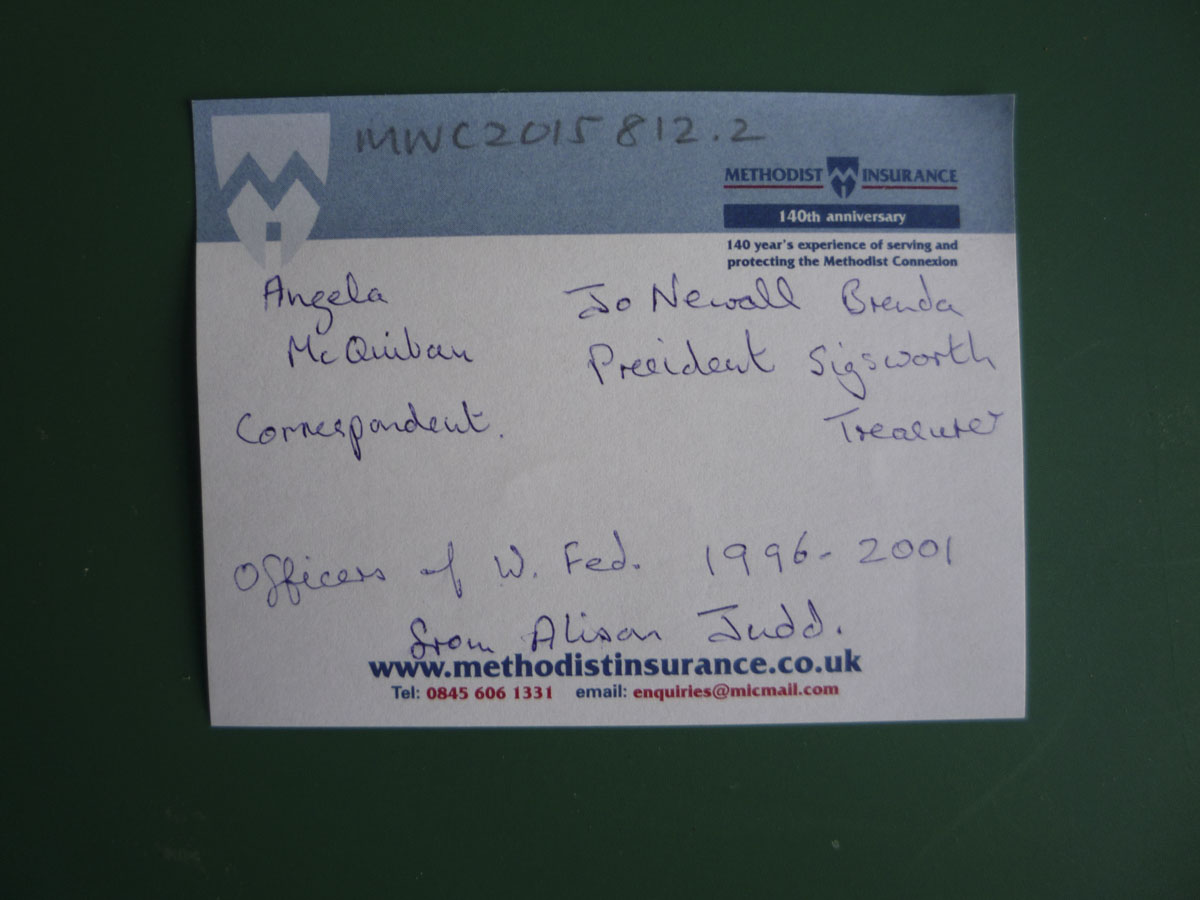 MWC2015 812.2
METHODIST INSURANCE
140th anniversary
140 year's experience of serving and
protecting the Methodist Connexion
Angela Jo Newall Brenda
McQuiban President Sigsworth
Correspondent. Treasurer
Officers of W. Fed. 1996-2001
from Alison Judd.
www.methodistinsurance.co.uk
Tel: 0845 606 1331 email: enquiries@micmail.com